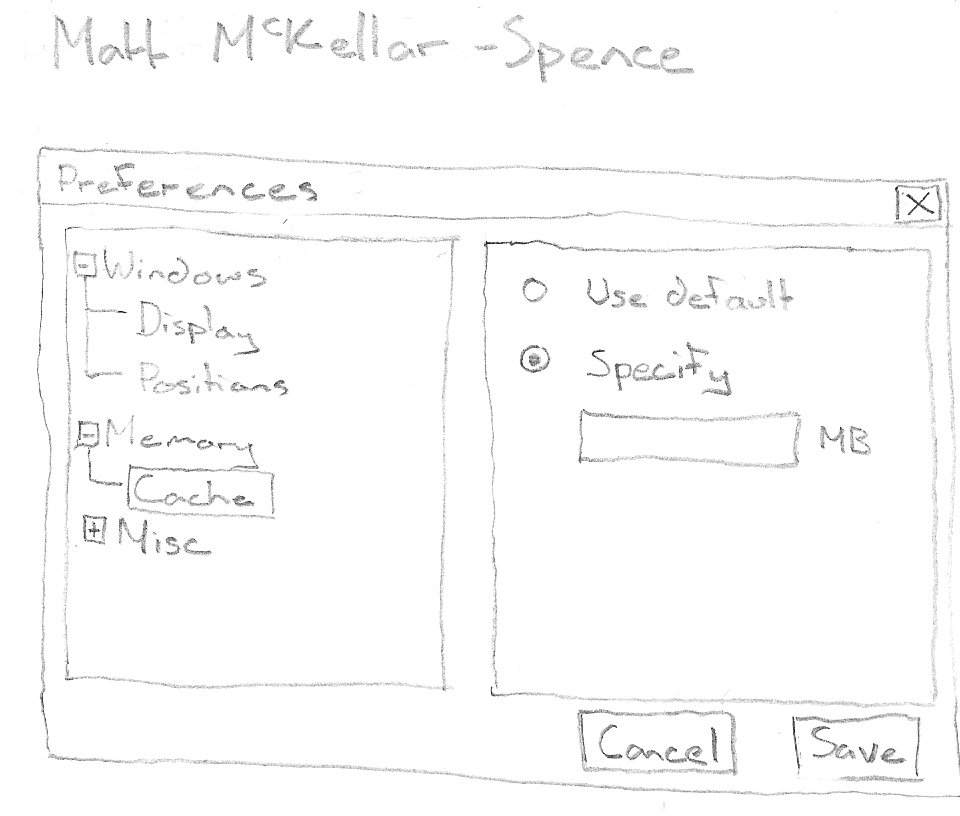 Matt McKellar-Spence
Preferences
Windows
Display
Positions
Memory
Cache
Misc
Use default
Specify
MB
Cancel
Save